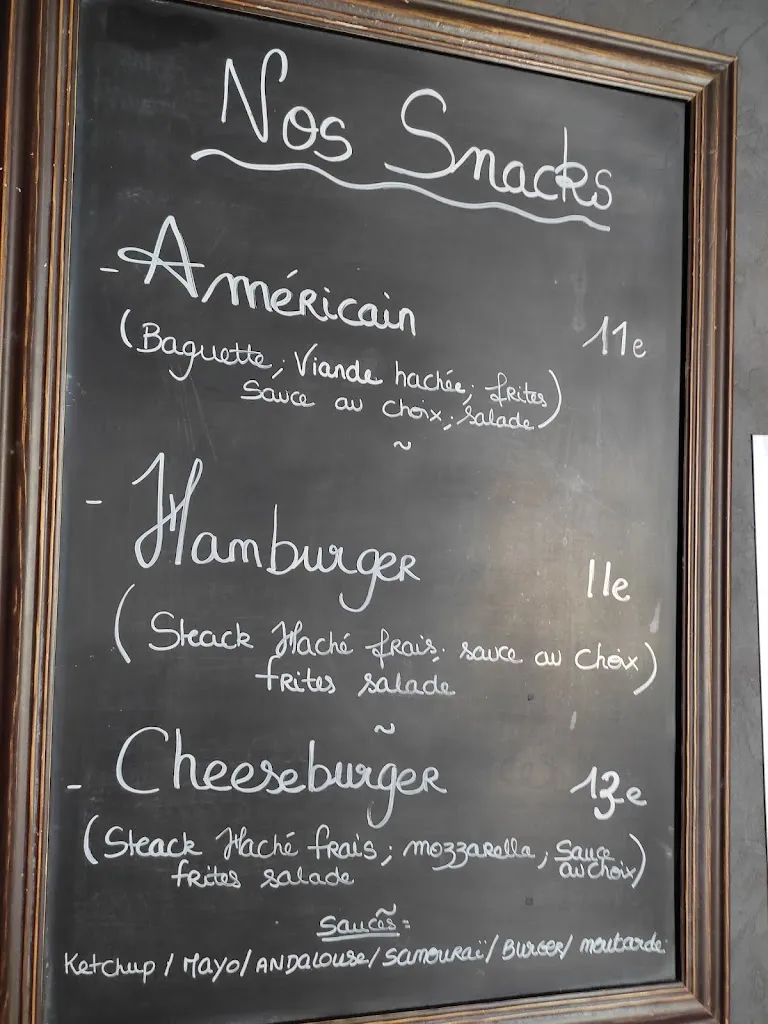 Nos Snacks
- Américain 11e
(Baguette, Viande hachée, frites)
sauce au choix, salade)
~
- Hamburger 11e
(Steack Haché frais, sauce au choix)
frites salade
~
- Cheeseburger 13e
(Steack Haché frais; mozzarella; Sauce au choix)
frites salade
~
Sauces =
Ketchup / Mayo / ANDALOUSE / SAMOURAÏ / BURGER / moutarde